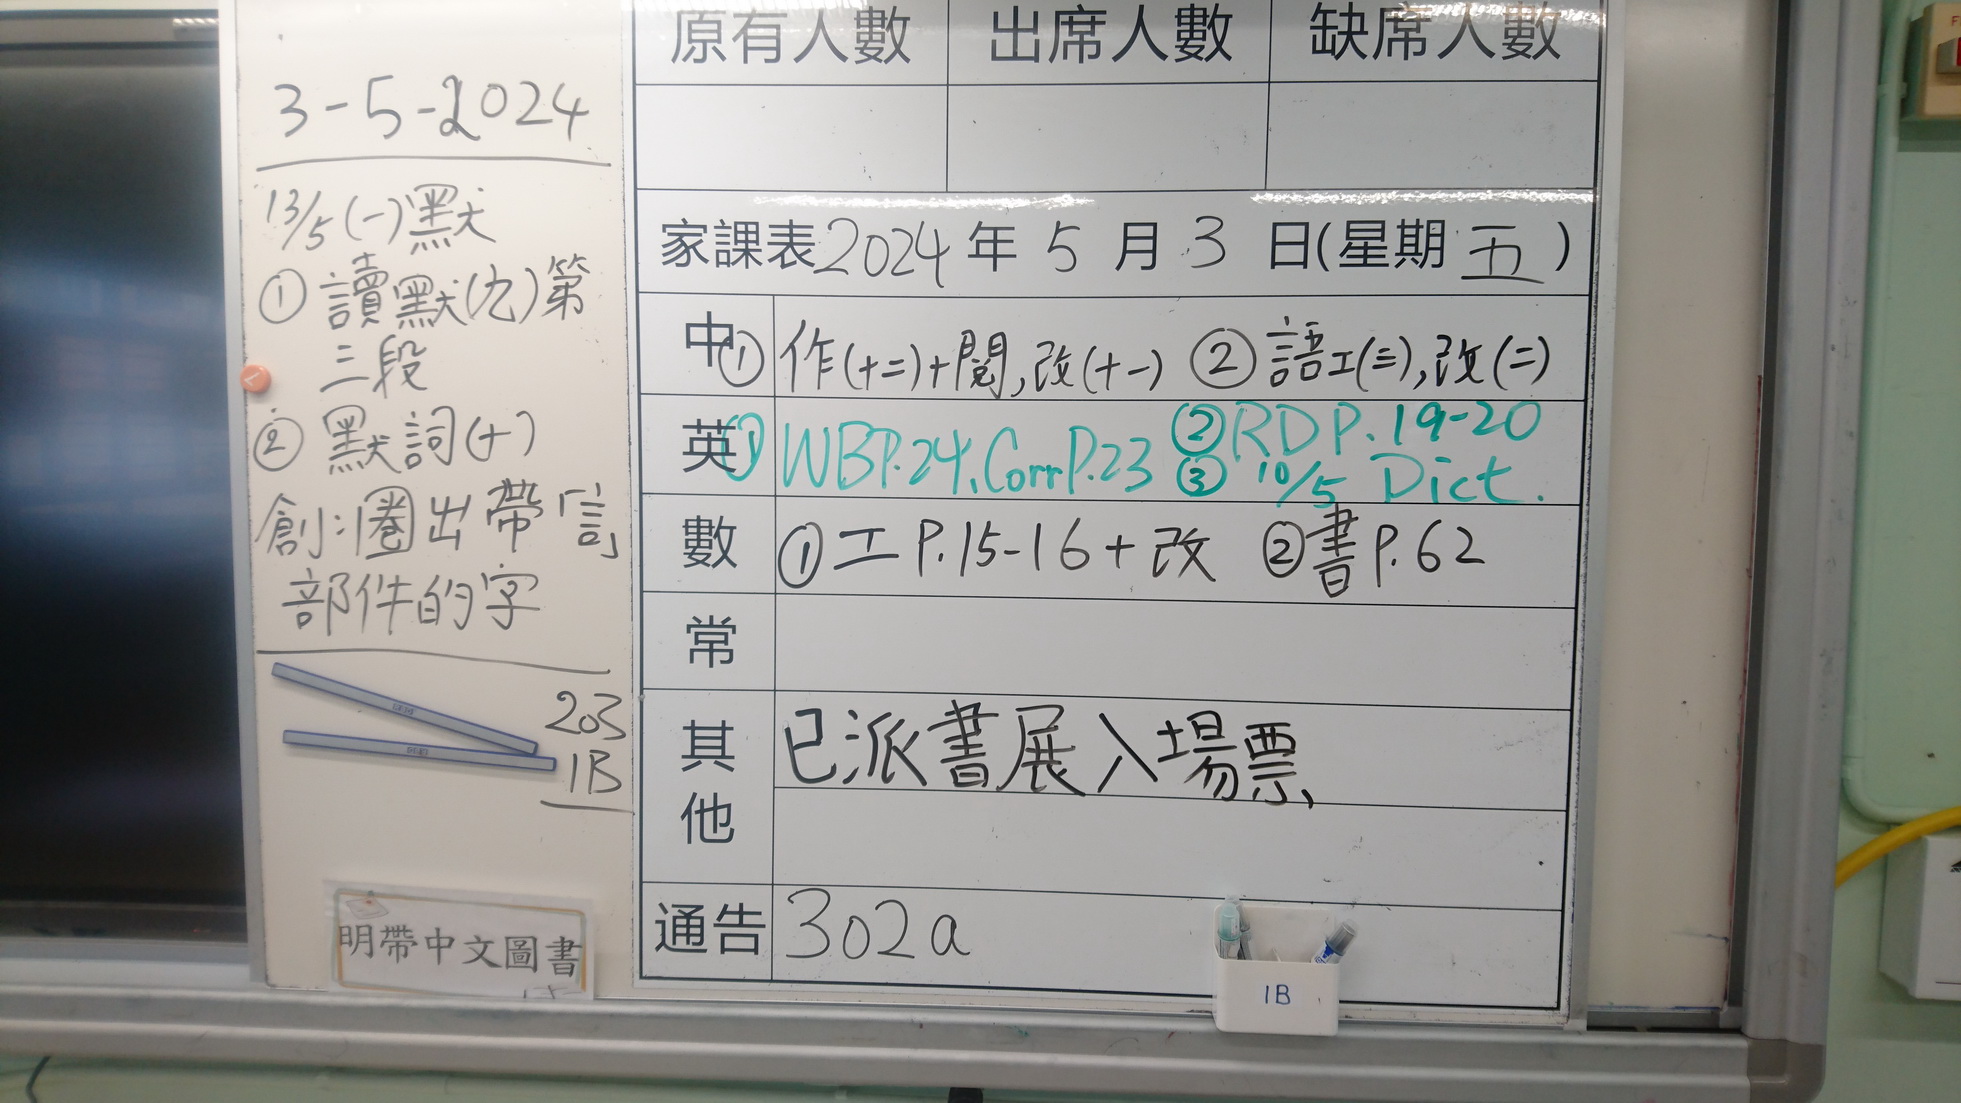 3-5-2024
13/5(一)默
① 讀默(九)第
三段
② 默詞(十)
創:圈出帶「言」
部件的字
203
1B
明帶中文圖書
原有人數 出席人數 缺席人數
家課表2024年5月3日(星期五)
中 ① 作(十二)+閱,改(十一) ② 語工(三),改(二)
英 ① WBP.24,CorrP.23 ② RD P.19-20
③ 10/5 Dict.
數 ① 工P.15-16+改 ② 書P.62
常
其他 已派書展入場票
通告 302a
1B